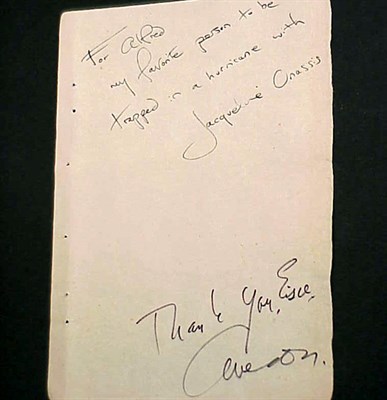 For Alfred
my favorite person to be
trapped in a hurricane with
Jacqueline Onassis
Thank You, Eisie.
Avedon.